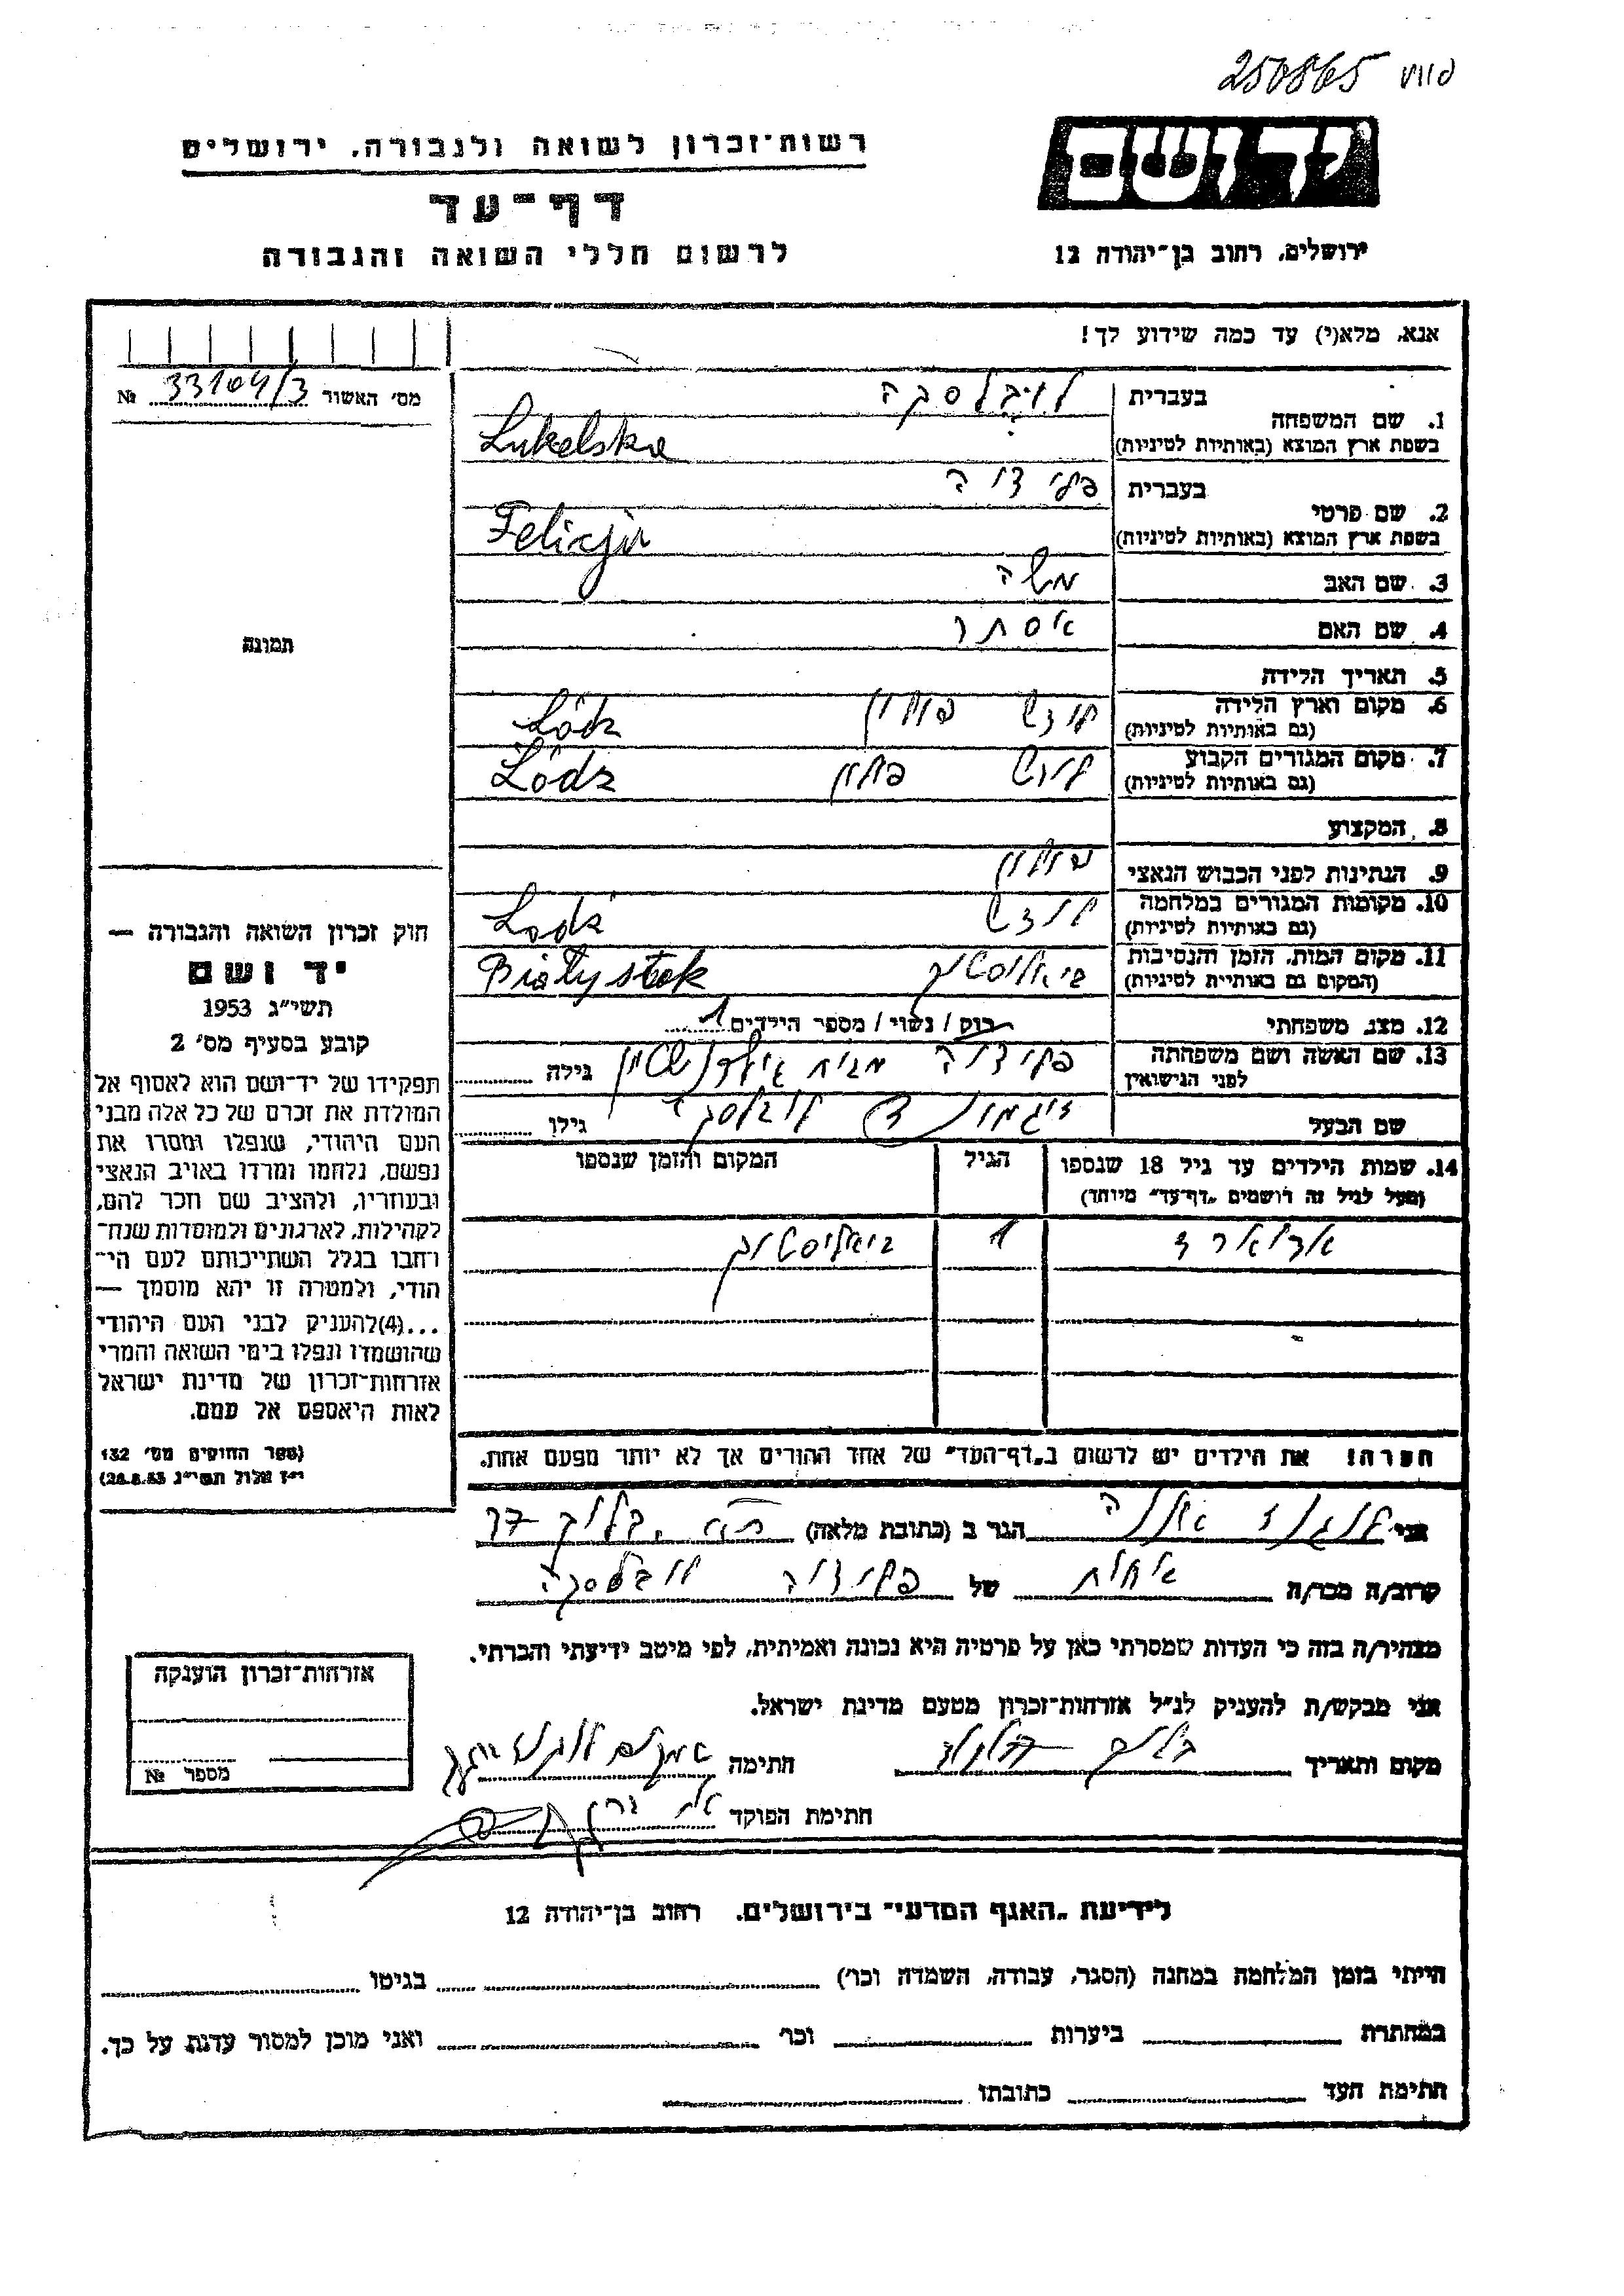 250865
יד ושם
רשות־זכרון לשואה ולגבורה, ירושלים
דף־עד
לרשום חללי השואה והגבורה
ירושלים, רחוב בן־יהודה 12
אנא, מלא(י) עד כמה שידוע לך!
מס' האשור 33104/3 №
תמונה
חוק זכרון השואה והגבורה —
יד ושם
תשי"ג 1953
קובע בסעיף מס' 2
תפקידו של יד־ושם הוא לאסוף אל
המולדת את זכרם של כל אלה מבני
העם היהודי, שנפלו ומסרו את
נפשם, נלחמו ומרדו באויב הנאצי
ובעוזריו, ולהציב שם וזכר להם,
לקהילות, לארגונים ולמוסדות שנח־
רחבו בגלל השתייכותם לעם הי־
הודי, ולמטרה זו יהא מוסמך —
...(4)להעניק לבני העם היהודי
שהושמדו ונפלו בימי השואה והמרי
אזרחות־זכרון של מדינת ישראל
לאות היאספם אל עמם.
(ספר החוקים מס' 132
י"ז אלול תשי"ג 28.8.53)
1. שם המשפחה בעברית
בשפת ארץ המוצא (באותיות לטיניות) Lukelska
2. שם פרטי בעברית
בשפת ארץ המוצא (באותיות לטיניות) Felicja
3. שם האב משה
4. שם האם אסתר
5. תאריך הלידה
6. מקום וארץ הלידה לודש פולין Łódz
(גם באותיות לטיניות)
7. מקום המגורים הקבוע לודש פולין Łódz
(גם באותיות לטיניות)
8. המקצוע
9. הנתינות לפני הכבוש הנאצי פולין
10. מקומות המגורים במלחמה לודש Lodz
(גם באותיות לטיניות)
11. מקום המות, הזמן והנסיבות ביאליסטוק Białystok
(המקום גם באותיות לטיניות)
12. מצב משפחתי רוק / נשוי / מספר הילדים 1
13. שם האשה ושם משפחתה גילה
לפני הנישואין
שם הבעל גילו
14. שמות הילדים עד גיל 18 שנספו הגיל המקום והזמן שנספו
(מעל לגיל זה רושמים "דף־עד" מיוחד)
1 ביאליסטוק
הערה! את הילדים יש לרשום ב"דף־העד" של אחד ההורים אך לא יותר מפעם אחת.
אני הגר ב (כתובת מלאה)
קרוב/ה מכר/ה אחות של
מצהיר/ה בזה כי העדות שמסרתי כאן על פרטיה היא נכונה ואמיתית, לפי מיטב ידיעתי והכרתי.
אני מבקש/ת להעניק לנ"ל אזרחות־זכרון מטעם מדינת ישראל.
מקום ותאריך חתימה
חתימת הפוקד
אזרחות־זכרון הוענקה
מספר №
לידיעת "האגף המדעי" בירושלים, רחוב בן־יהודה 12
הייתי בזמן המלחמה במחנה (הסגר, עבודה, השמדה וכו') בגיטו
במחתרת ביערות וכו' ואני מוכן למסור עדות על כך.
חתימת העד כתובתו